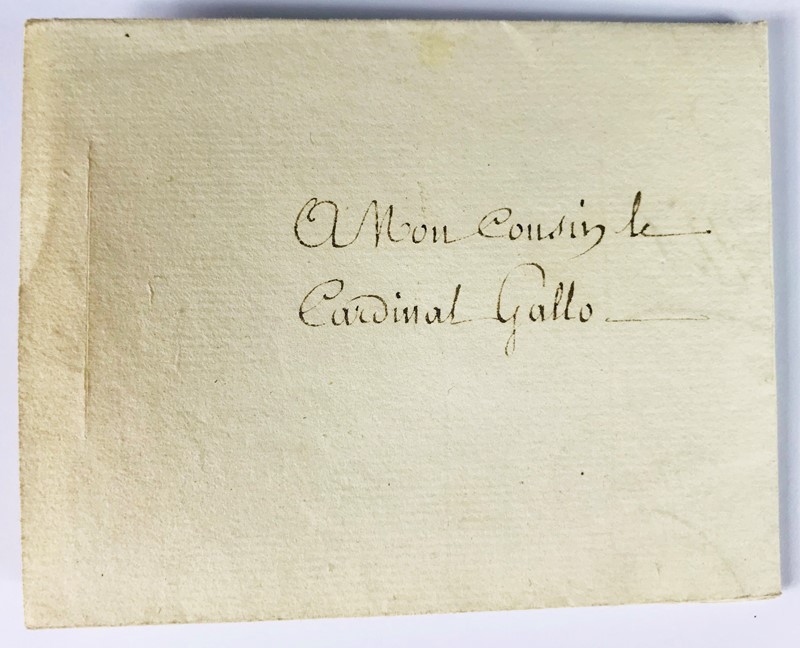 A Mon Cousin le
Cardinal Gallo